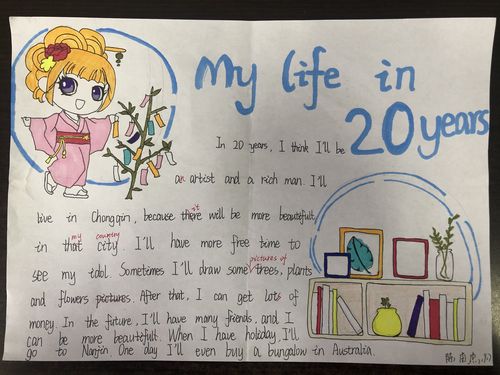 My life in
20 years
In 20 years, I think I'll be
an artist and a rich man. I'll
it
live in Chongqin, because there will be more beautifull,
my country
in that city. I'll have more free time to
pictures of
see my idol. Sometimes I'll draw some trees, plants
and flowers pictures. After that, I can get lots of
money. In the future, I'll have many friends, and I
can be more beautifull. When I have holiday, I'll
go to Nanjin One day I'll even buy a bungalow in Australia.